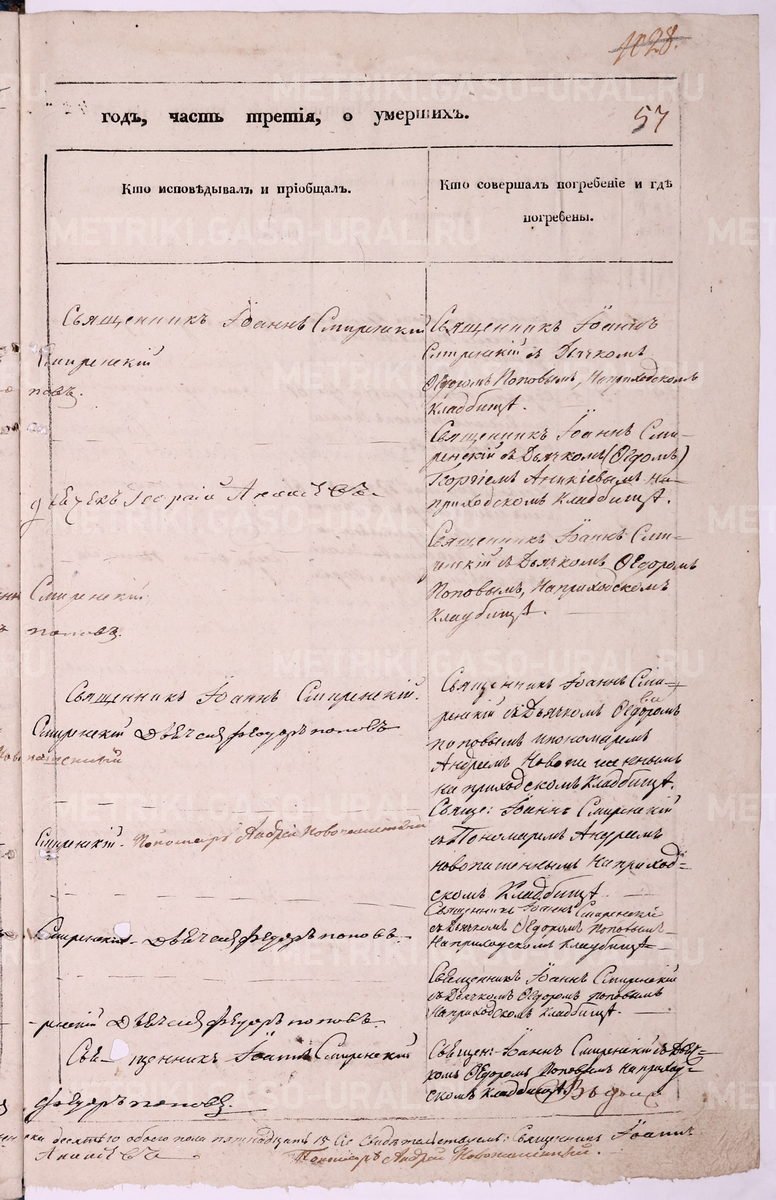 1028.
57
годъ, часть третія, о умершихъ.
Кто исповѣдывалъ и пріобщалъ.
Кто совершалъ погребеніе и гдѣ
погребены.
Священникъ Іоаннъ Смиренскій
Смиренскій
повъ.
Священникъ Іоаннъ
Смиренскій съ Дьячкомъ
Ѳедоромъ Поповымъ, На приходскомъ
Кладбищѣ.
Священникъ Іоаннъ Сми-
ренскій съ Дьячкомъ (Ѳедомъ)
Георгіемъ Аникіевымъ На
приходскомъ Кладбищѣ.
Георгій
Священникъ Іоаннъ Сми-
ренскій съ Дьячкомъ Ѳедоромъ
Поповымъ, На приходскомъ
Кладбищѣ.
Смиренскій
поповъ.
Священникъ Іоаннъ Смиренскій.
Смиренскій Дьячекъ Федоръ поповъ
Священникъ Іоаннъ Сми-
ренскій съ Дьячкомъ Ѳедоромъ
поповымъ и пономаремъ
Андреемъ Новопашеннымъ
на приходскомъ Кладбищѣ.
Смиренскій. Пономарь Андрей Новопашенный
Свяще: Іоаннъ Смиренскій
съ Пономаремъ Андреемъ
новопашеннымъ На приход-
скомъ Кладбищѣ.
Смиренскій Дьячекъ Федоръ поповъ.
Священникъ Іоаннъ Смиренскій
съ Дьячкомъ Ѳедоромъ Поповымъ
На приходскомъ Кладбищѣ
ренскій Дьячекъ Федоръ поповъ.
Священникъ Іоаннъ Смиренскій
съ Дьячкомъ Ѳедоромъ поповымъ
На приходскомъ Кладбищѣ.
Священникъ Іоаннъ Смиренскій
Федоръ поповъ.
Священ: Іоаннъ Смиренскій съ Дьяч-
комъ Ѳедоромъ Поповымъ На приход-
скомъ Кладбищѣ.
обоего пола пятнадцать 15 Священникъ Іоаннъ
Пономарь Андрей Новопашенный.
METRIKI.GASO-URAL.RU